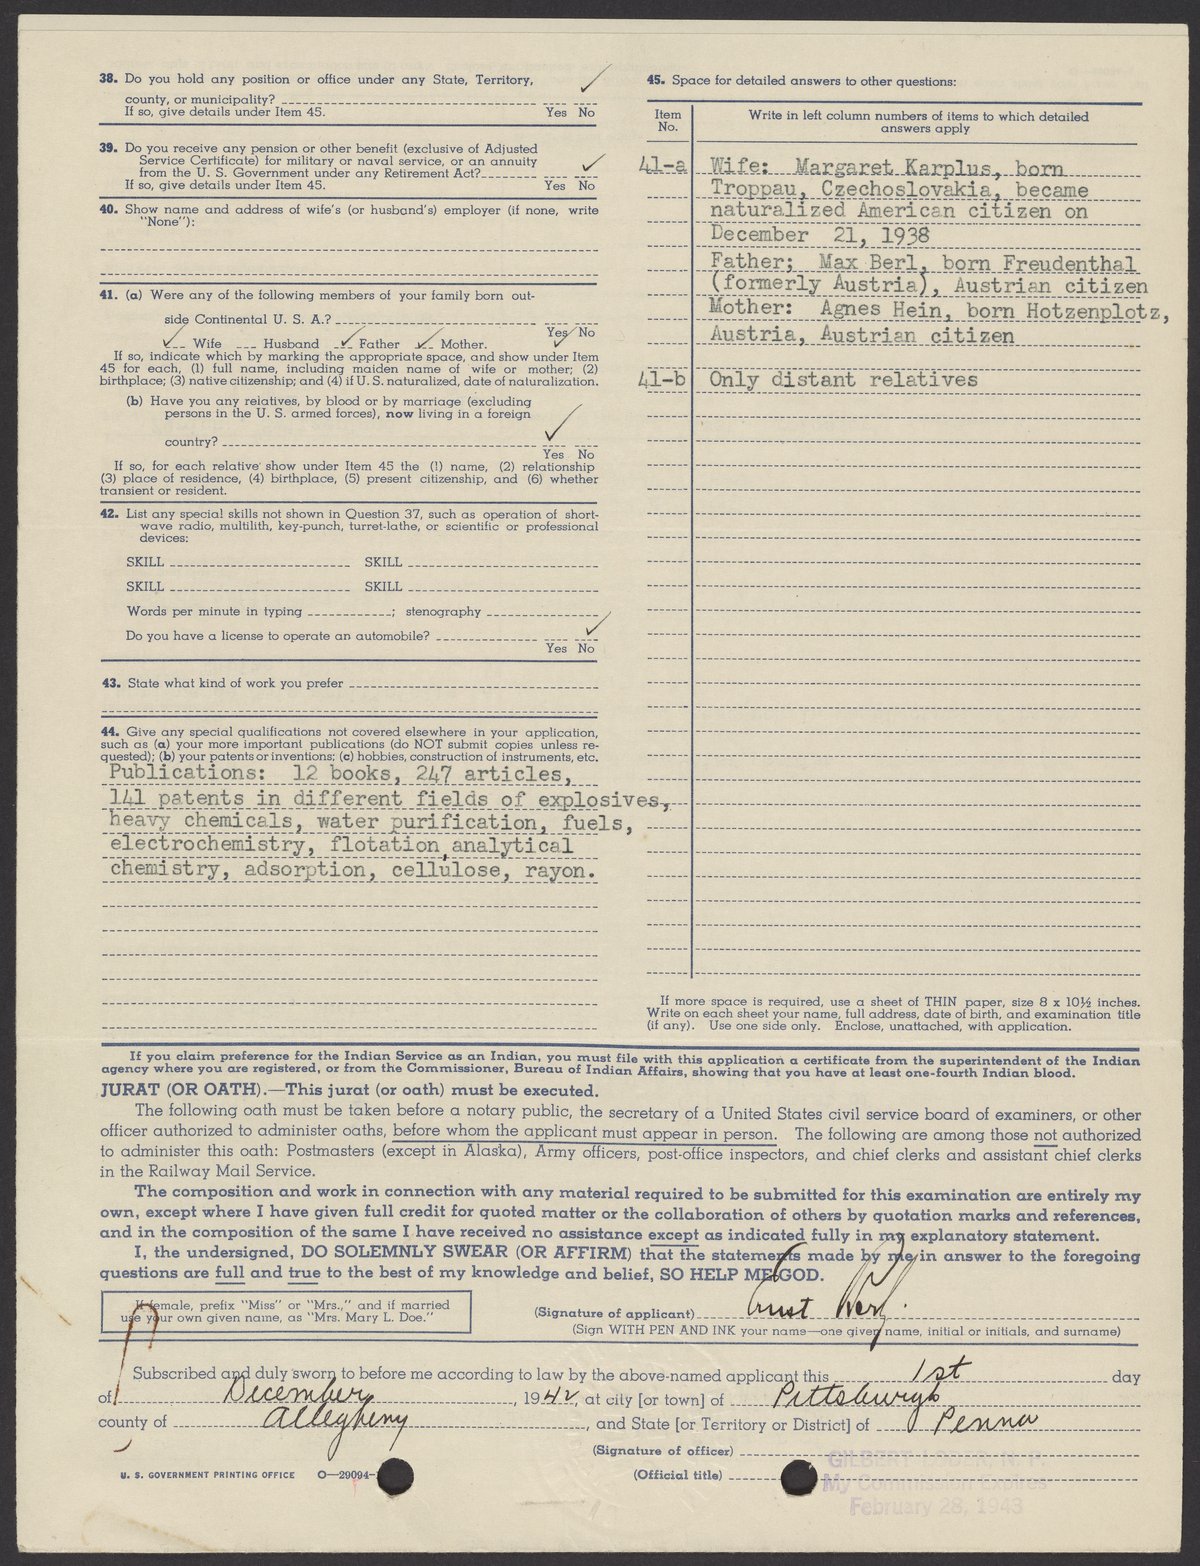 38. Do you hold any position or office under any State, Territory,
county, or municipality?
Yes No
If so, give details under Item 45.
39. Do you receive any pension or other benefit (exclusive of Adjusted
Service Certificate) for military or naval service, or an annuity
from the U. S. Government under any Retirement Act?
If so, give details under Item 45.
Yes No
40. Show name and address of wife's (or husband's) employer (if none, write
"None"):
41. (a) Were any of the following members of your family born out-
side Continental U. S. A.?
Yes No
Wife Husband Father Mother.
If so, indicate which by marking the appropriate space, and show under Item
45 for each, (1) full name, including maiden name of wife or mother; (2)
birthplace; (3) native citizenship; and (4) if U. S. naturalized, date of naturalization.
(b) Have you any relatives, by blood or by marriage (excluding
persons in the U. S. armed forces), now living in a foreign
country?
Yes No
If so, for each relative show under Item 45 the (1) name, (2) relationship
(3) place of residence, (4) birthplace, (5) present citizenship, and (6) whether
transient or resident.
42. List any special skills not shown in Question 37, such as operation of short-
wave radio, multilith, key-punch, turret-lathe, or scientific or professional
devices:
SKILL SKILL
SKILL SKILL
Words per minute in typing ; stenography
Do you have a license to operate an automobile?
Yes No
43. State what kind of work you prefer
44. Give any special qualifications not covered elsewhere in your application,
such as (a) your more important publications (do NOT submit copies unless re-
quested); (b) your patents or inventions; (c) hobbies, construction of instruments, etc.
Publications: 12 books, 247 articles,
141 patents in different fields of explosives,
heavy chemicals, water purification, fuels,
electrochemistry, flotation, analytical
chemistry, adsorption, cellulose, rayon.
45. Space for detailed answers to other questions:
Item
No.
Write in left column numbers of items to which detailed
answers apply
41-a Wife: Margaret Karplus, born
Troppau, Czechoslovakia, became
naturalized American citizen on
December 21, 1938
Father; Max Berl, born Freudenthal
(formerly Austria), Austrian citizen
Mother: Agnes Hein, born Hotzenplotz,
Austria, Austrian citizen
41-b Only distant relatives
If more space is required, use a sheet of THIN paper, size 8 x 10½ inches.
Write on each sheet your name, full address, date of birth, and examination title
(if any). Use one side only. Enclose, unattached, with application.
If you claim preference for the Indian Service as an Indian, you must file with this application a certificate from the superintendent of the Indian
agency where you are registered, or from the Commissioner, Bureau of Indian Affairs, showing that you have at least one-fourth Indian blood.
JURAT (OR OATH).—This jurat (or oath) must be executed.
The following oath must be taken before a notary public, the secretary of a United States civil service board of examiners, or other
officer authorized to administer oaths, before whom the applicant must appear in person. The following are among those not authorized
to administer this oath: Postmasters (except in Alaska), Army officers, post-office inspectors, and chief clerks and assistant chief clerks
in the Railway Mail Service.
The composition and work in connection with any material required to be submitted for this examination are entirely my
own, except where I have given full credit for quoted matter or the collaboration of others by quotation marks and references,
and in the composition of the same I have received no assistance except as indicated fully in my explanatory statement.
I, the undersigned, DO SOLEMNLY SWEAR (OR AFFIRM) that the statements made by me in answer to the foregoing
questions are full and true to the best of my knowledge and belief, SO HELP ME GOD.
If female, prefix "Miss" or "Mrs.," and if married
use your own given name, as "Mrs. Mary L. Doe."
(Signature of applicant) Ernst Berl.
(Sign WITH PEN AND INK your name—one given name, initial or initials, and surname)
Subscribed and duly sworn to before me according to law by the above-named applicant this 1st day
of December, 1942, at city [or town] of Pittsburgh
county of Allegheny, and State [or Territory or District] of Penna
(Signature of officer)
GILBERT N. P.
U. S. GOVERNMENT PRINTING OFFICE O—29094-
(Official title)
My Commission Expires
February 28, 1943